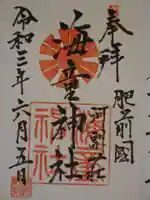 奉拝
肥前國
海童神社
令和三年六月五日